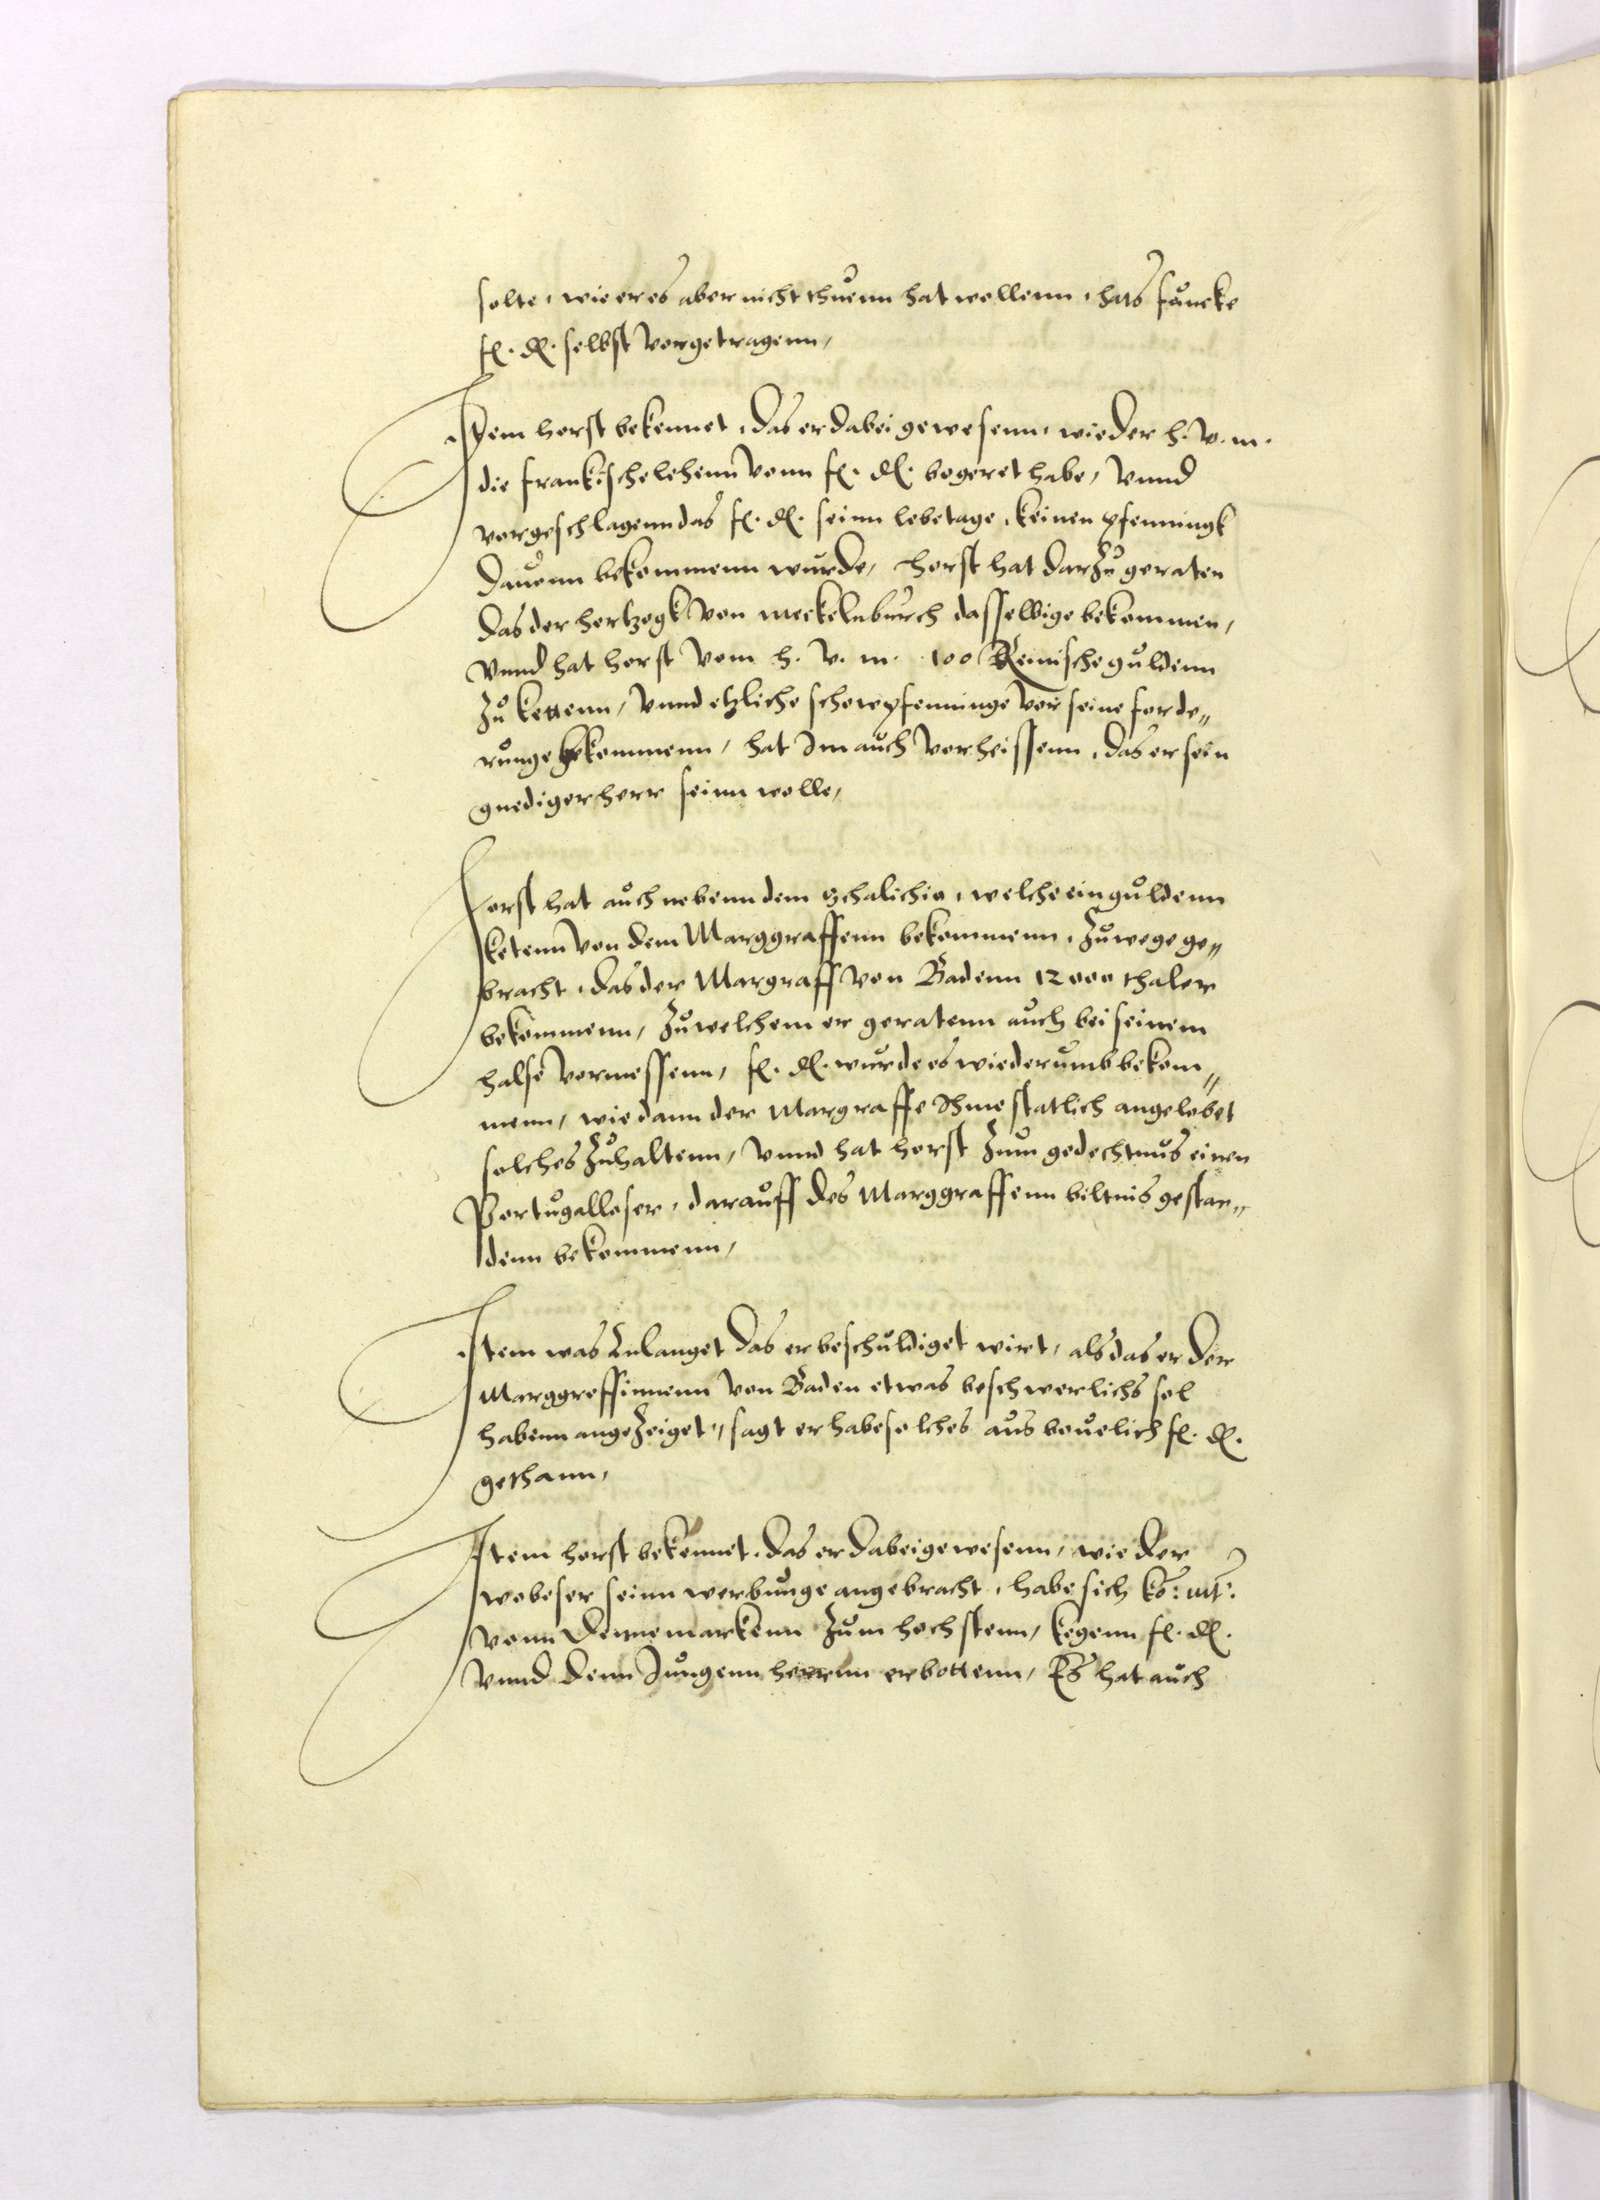 solte, wie er es aber nicht thuenn hat wollenn, hats funcke
fl. dl. selbst vorgetragenn,
Item horst bekennet, das er dabei gewesenn, wie der h. v. m.
die franckische lehenn vonn fl. dl. begeret habe, vnnd
vorgeschlagenn das fl. dl. seinn lebetage, keinen pfenningk
dauonn bekommenn wurde, horst hat darzu geraten
das der hertzogk von meckelnburch dasselbige bekommen,
vnnd hat horst vom h. v. m. 100 Reinische guldenn
zu kettenn, vnnd etzliche schowpfenninge vor seine forde„
runge bekommenn, hat Im auch vorheissenn, das er sein
gnediger herr seinn wolle,
Horst hat auch nebenn dem schalichio, welche ein guldenn
ketenn von dem Marggraffenn bekommenn, zuwege ge„
bracht, das der Margraff von Badenn 12000 thaler
bekommenn, zu welchem er geratenn auch bei seinem
halse vormessenn, fl. dl. wurde es wiederumb bekom„
menn, wie dann der Margraffe Ihme statlich angelobet
solches zuhaltenn, vnnd hat horst zum gedechtnus einen
Portugalleser, darauff des Marggraffenn biltnis gestan„
denn bekommenn,
Item was Anlanget das er beschuldiget wirt, als das er der
Marggreffinnenn von Baden etwas beschwerlichs sol
habenn angezeiget, sagt er habe solches aus beuelich fl. dl.
gethann,
Item horst bekennet, das er dabei gewesenn, wie der
wobeser seinn werbunge angebracht, habe sich ko: mt:
vonn Dennemarckenn zum hochstenn, kegenn fl. dl.
vnnd denn Jungenn herrnn erbottenn, Es hat auch